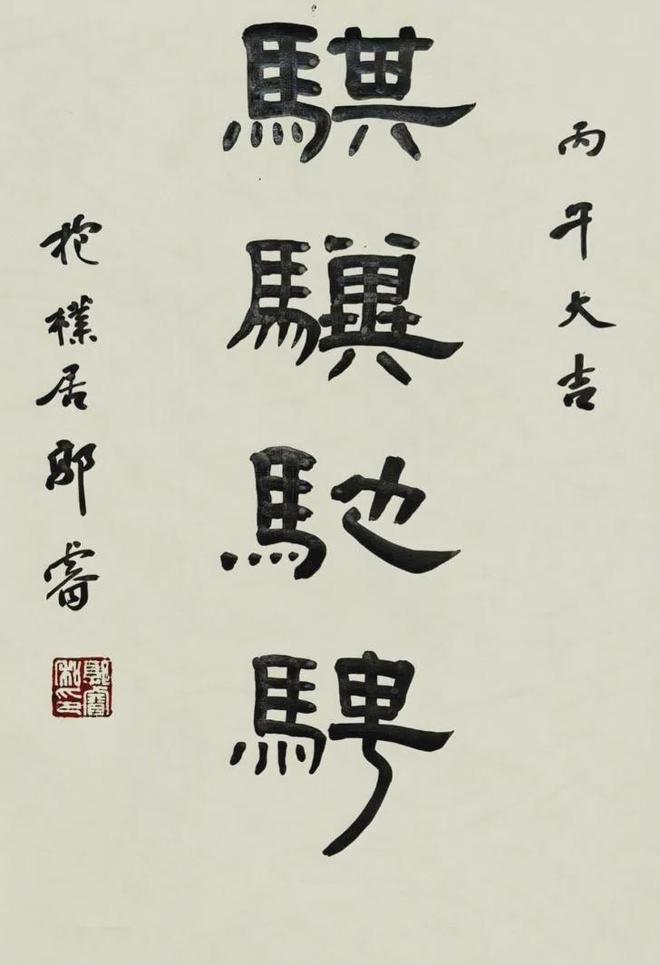 丙午大吉
騏驥馳騁
抱樸居鄔睿